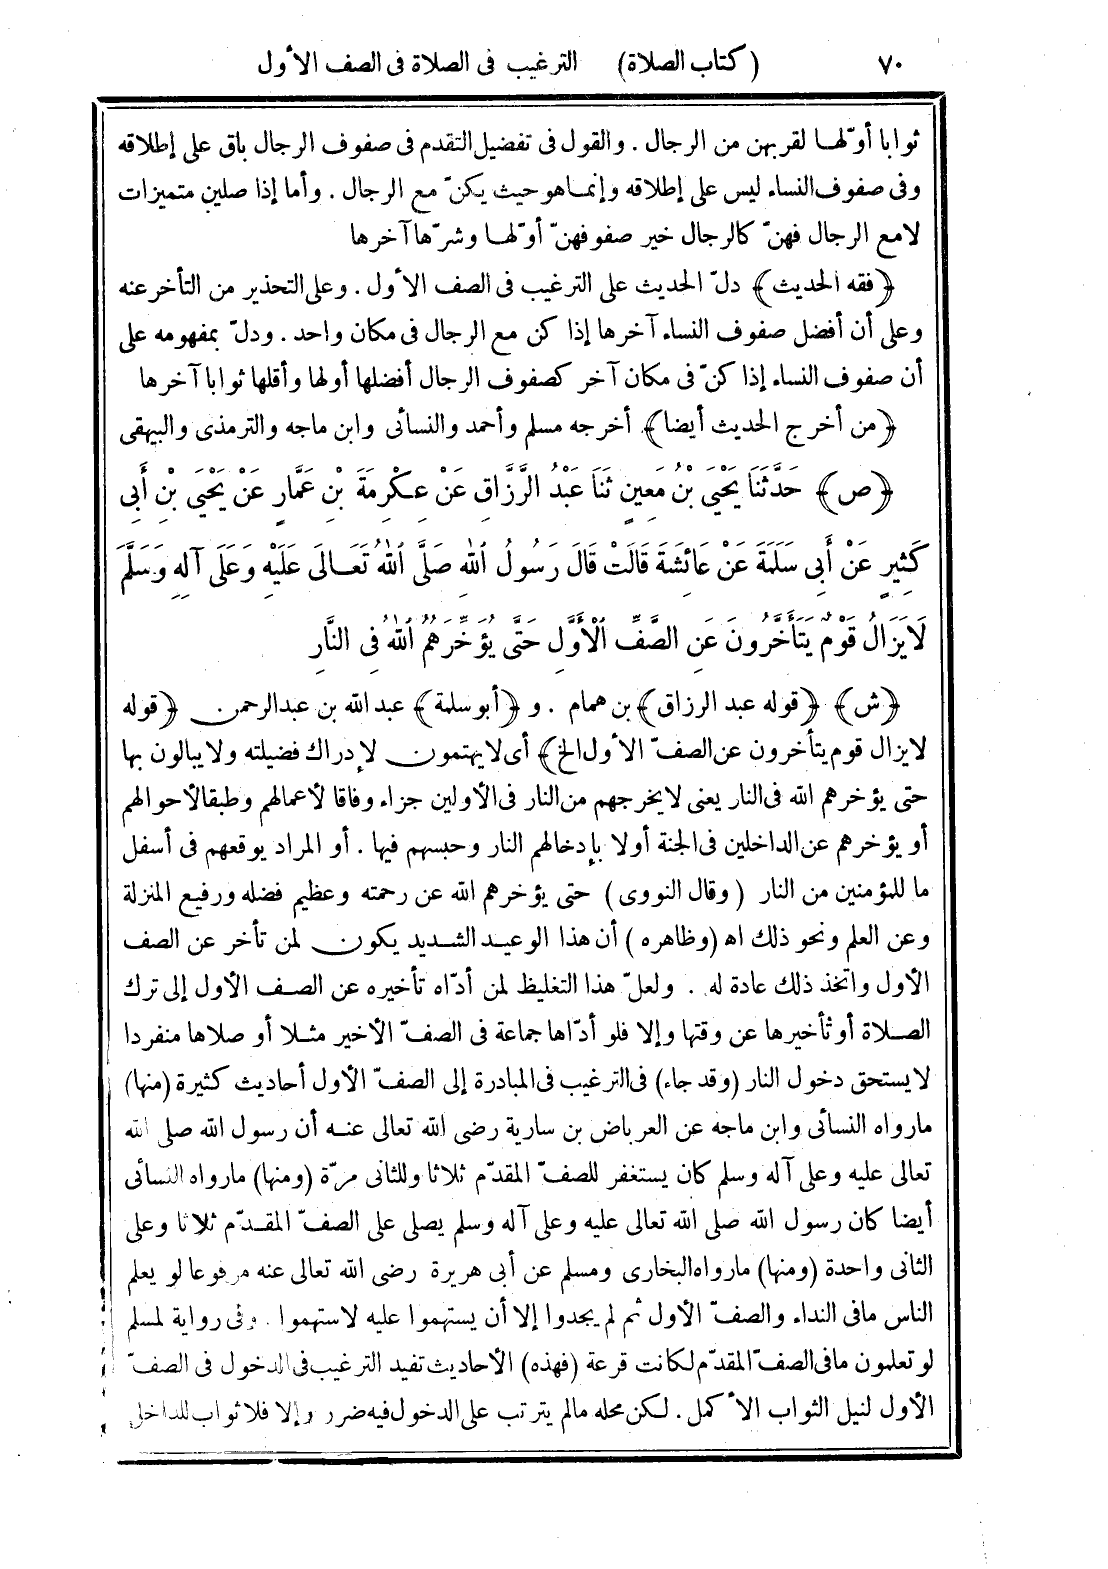 ٧٠ (كتاب الصلاة) الترغيب فى الصلاة فى الصف الأول
ثوابا أوّلها لقربهن من الرجال . والقول فى تفضيل التقدم فى صفوف الرجال باق على إطلاقه
وفى صفوف النساء ليس على إطلاقه وإنما هو حيث يكنّ مع الرجال . وأما إذا صلين متميزات
لامع الرجال فهنّ كالرجال خير صفوفهنّ أوّلها وشرّها آخرها
﴿فقه الحديث﴾ دلّ الحديث على الترغيب فى الصف الأول . وعلى التحذير من التأخر عنه
وعلى أن أفضل صفوف النساء آخرها إذا كن مع الرجال فى مكان واحد . ودلّ بمفهومه على
أن صفوف النساء إذا كنّ فى مكان آخر كصفوف الرجال أفضلها أولها وأقلها ثوابا آخرها
﴿من أخرج الحديث أيضا﴾ أخرجه مسلم وأحمد والنسائى وابن ماجه والترمذى والبيهقى
﴿ص﴾ حَدَّثَنَا يَحْيَى بْنُ مَعِينٍ ثَنَا عَبْدُ الرَّزَّاقِ عَنْ عِكْرِمَةَ بْنِ عَمَّارٍ عَنْ يَحْيَى بْنِ أَبِى
كَثِيرٍ عَنْ أَبِى سَلَمَةَ عَنْ عَائِشَةَ قَالَتْ قَالَ رَسُولُ اللهِ صَلَّى اللهُ تَعَالَى عَلَيْهِ وَعَلَى آلِهِ وَسَلَّمَ
لَايَزَالُ قَوْمٌ يَتَأَخَّرُونَ عَنِ الصَّفِّ الْأَوَّلِ حَتَّى يُؤَخِّرَهُمُ اللهُ فِى النَّارِ
﴿ش﴾ ﴿قوله عبد الرزاق﴾ بن همام . و ﴿أبو سلمة﴾ عبد الله بن عبد الرحمن ﴿قوله
لايزال قوم يتأخرون عن الصفّ الأول الخ﴾ أى لايهتمون لإدراك فضيلته ولا يبالون بها
حتى يؤخرهم الله فى النار يعنى لايخرجهم من النار فى الأولين جزاء وفاقا لأعمالهم وطبقا لأحوالهم
أو يؤخرهم عن الداخلين فى الجنة أولا بإدخالهم النار وحبسهم فيها . أو المراد يوقعهم فى أسفل
ما للمؤمنين من النار (وقال النووى) حتى يؤخرهم الله عن رحمته وعظيم فضله ورفيع المنزلة
وعن العلم ونحو ذلك اه (وظاهره) أن هذا الوعيد الشديد يكون لمن تأخر عن الصف
الأول واتخذ ذلك عادة له . ولعلّ هذا التغليظ لمن أدّاه تأخيره عن الصف الأول إلى ترك
الصلاة أو تأخيرها عن وقتها وإلا فلو أدّاها جماعة فى الصفّ الأخير مثلا أو صلاها منفردا
لايستحق دخول النار (وقد جاء) فى الترغيب فى المبادرة إلى الصفّ الأول أحاديث كثيرة (منها)
مارواه النسائى وابن ماجه عن العرباض بن سارية رضى الله تعالى عنه أن رسول الله صلى الله
تعالى عليه وعلى آله وسلم كان يستغفر للصفّ المقدّم ثلاثا وللثانى مرّة (ومنها) مارواه النسائى
أيضا كان رسول الله صلى الله تعالى عليه وعلى آله وسلم يصلى على الصفّ المقدّم ثلاثا وعلى
الثانى واحدة (ومنها) مارواه البخارى ومسلم عن أبى هريرة رضى الله تعالى عنه مرفوعا لو يعلم
الناس مافى النداء والصفّ الأول ثم لم يجدوا إلا أن يستهموا عليه لاستهموا . وفى رواية لمسلم
لو تعلمون مافى الصفّ المقدّم لكانت قرعة (فهذه) الأحاديث تفيد الترغيب فى الدخول فى الصفّ
الأول لنيل الثواب الأكمل . لكن محله مالم يترتب على الدخول فيه ضرر وإلا فلا ثواب للداخل